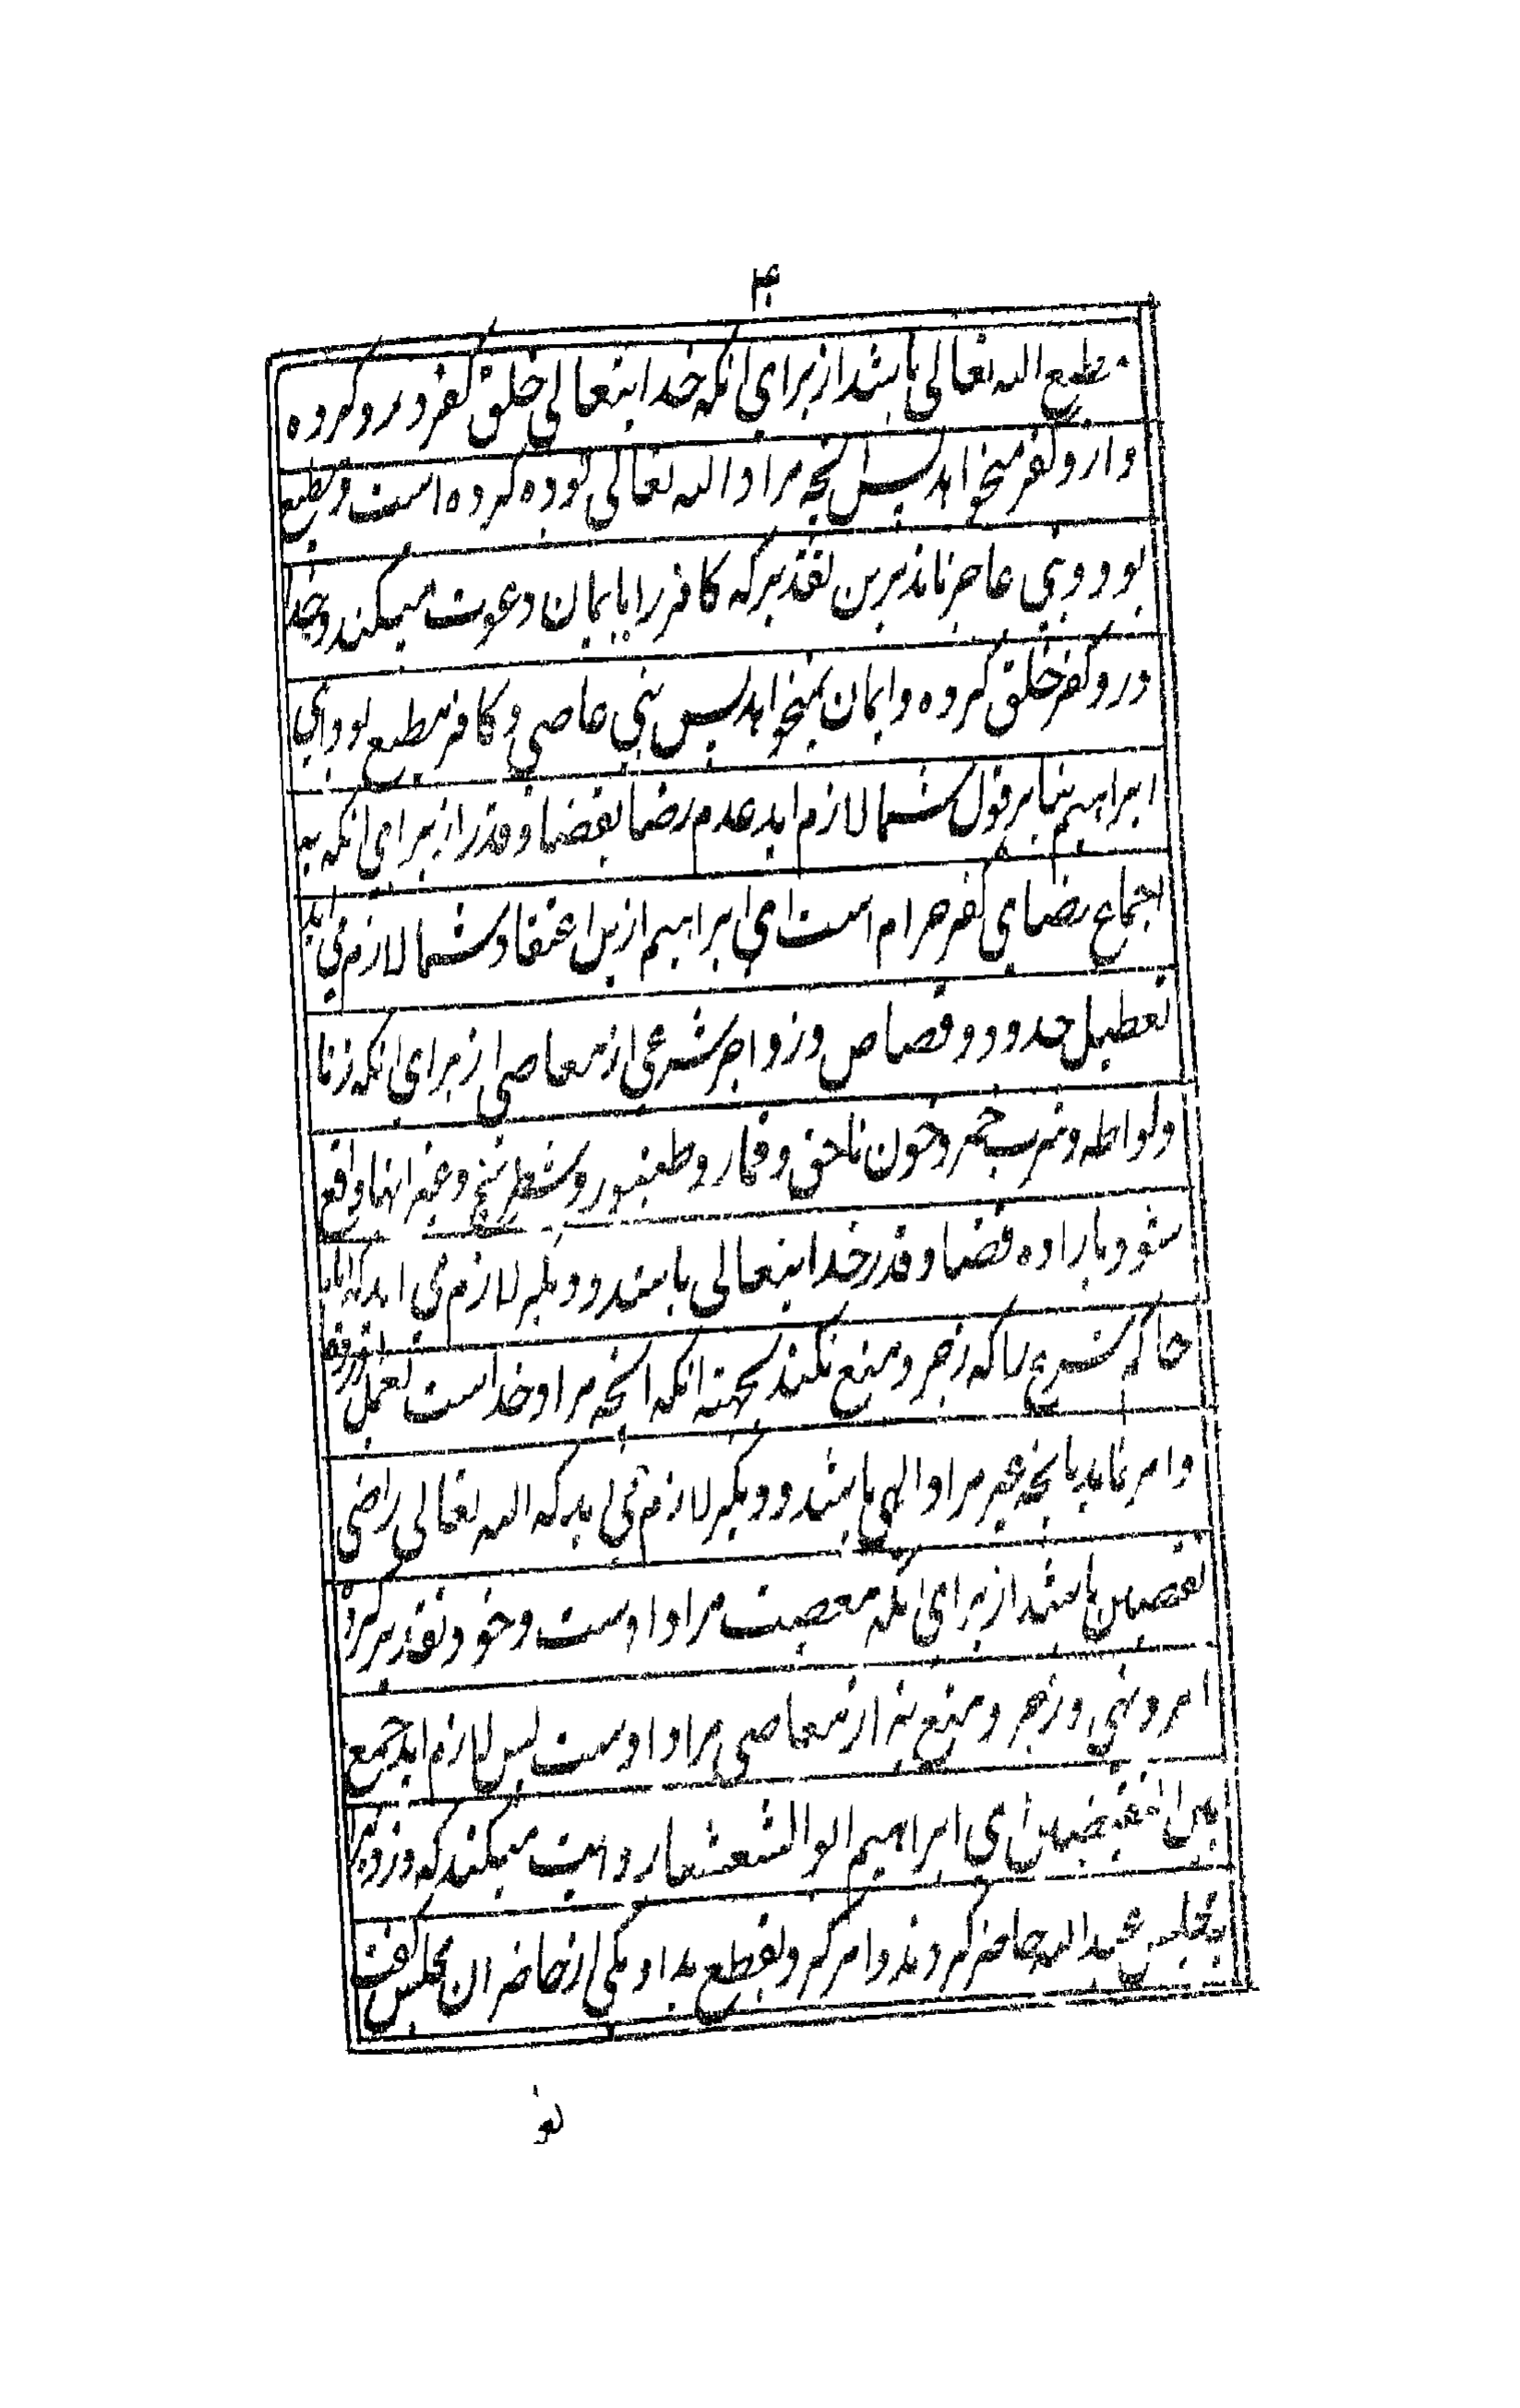 ۴۰
مطیع الله تعالی باشد از برای انکه خدایتعالی خلق کفر درو کرده
و ازو کفر میخواهد پس انچه مراد الله تعالی بوده کرده است و مطیع
بود و نبی عاصی بر تقدیر که کافر را بایمان دعوت میکند و خدا
درو کفر خلق کرده و ایمان نمیخواهد پس نبی عاصی و کافر مطیع بود ای
ابراهیم بنابر قول شما لازم اید عدم رضا بقضا و قدر از برای انکه به
اجماع رضای کفر حرام است ای ابراهیم ازین اعتقاد شما لازم می اید
تعطیل حدود و قصاص و زواجر شرعی از معاصی از برای انکه زنا
و لواطه و شرب خمر و خون ناحق و قمار و طنبور و شطرنج و غیر انها واقع
شود باراده قضا و قدر خدایتعالی باشد و دیگر لازم می اید که
حاکم شرع را که زجر و منع نکند بجهته انکه انچه مراد خداست بعمل
و امر نماید بانچه غیر مراد الهی باشد و دیگر لازم می اید که الله تعالی راضی
نقیضین باشد از برای انکه معصیت مراد اوست و خود تقدیر کرده
امر و نهی و زجر و منع نیز از معاصی مراد اوست پس لازم اید جمع
بین النقیضین ای ابراهیم ابوالشعشا روایت میکند که دزدی را
بمجلس عبدالله حاضر کردند و امر کرد بقطع ید او یکی از حاضران مجلس گفت